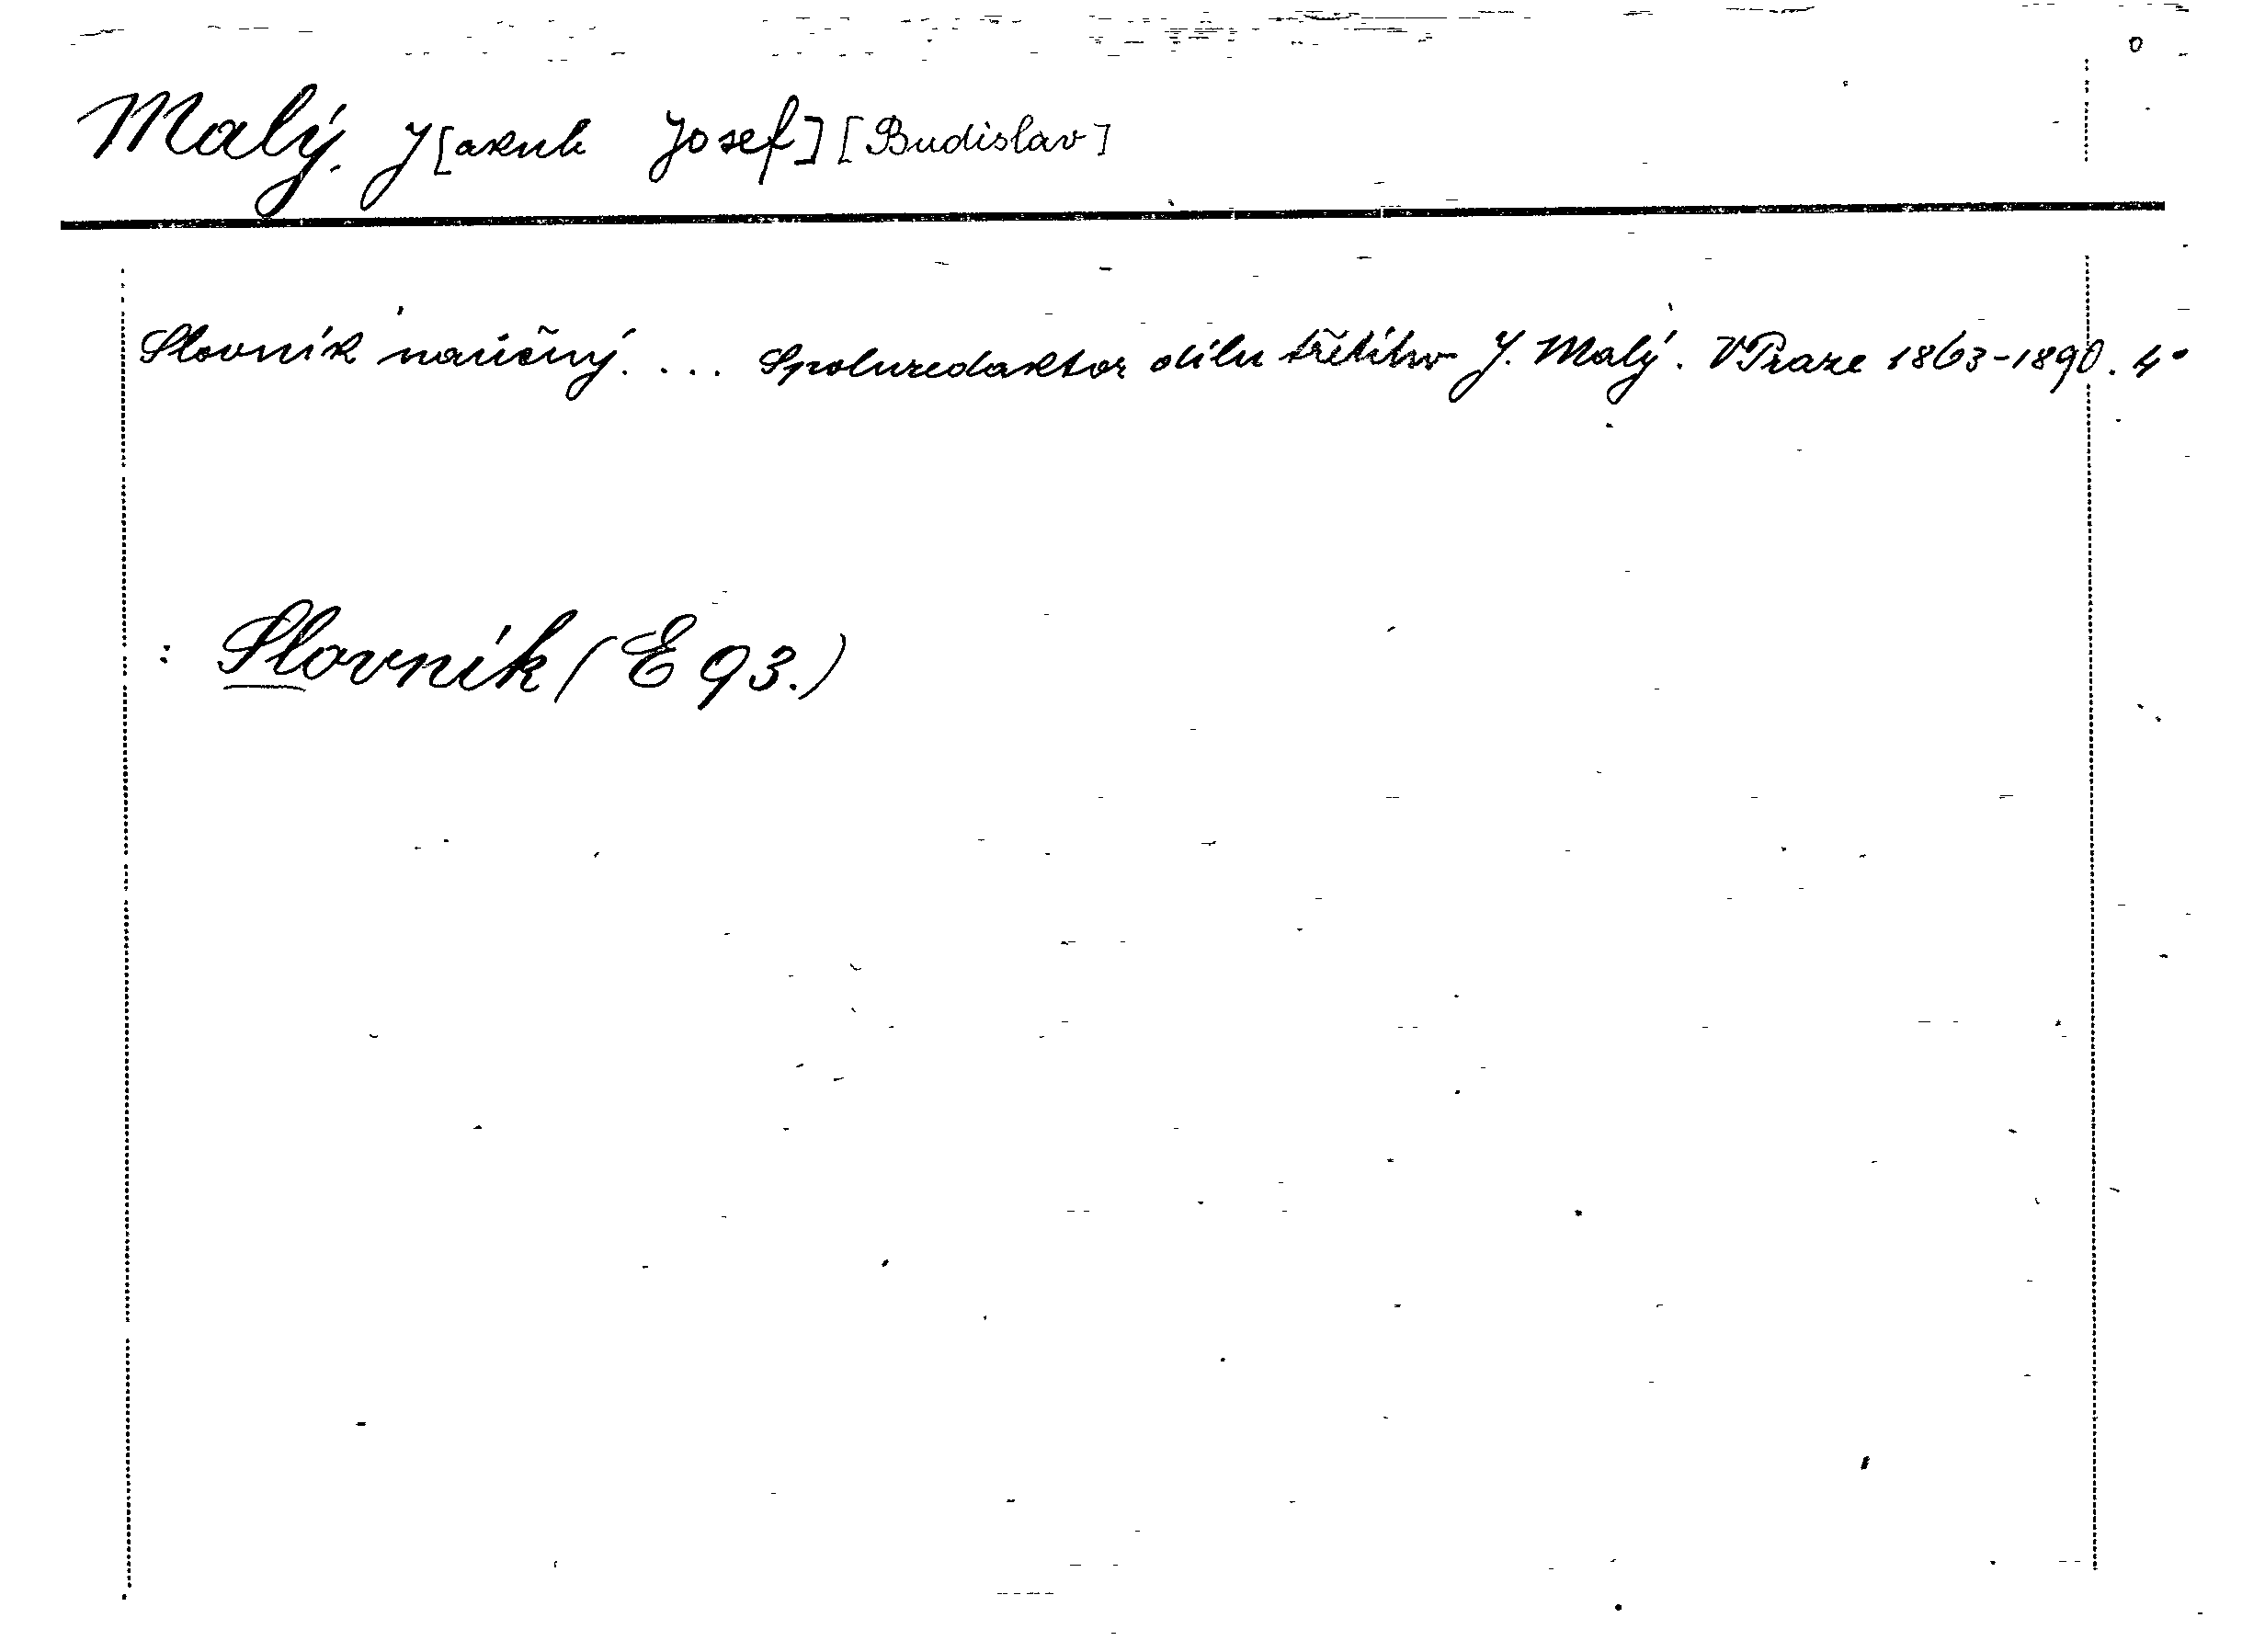 Malý. J[akub Josef] [Budislav]
Slovník naučný. ... Spoluredaktor dílu třetího J. Malý. V Praze 1863-1890. 4°
: Slovník (E 93.)